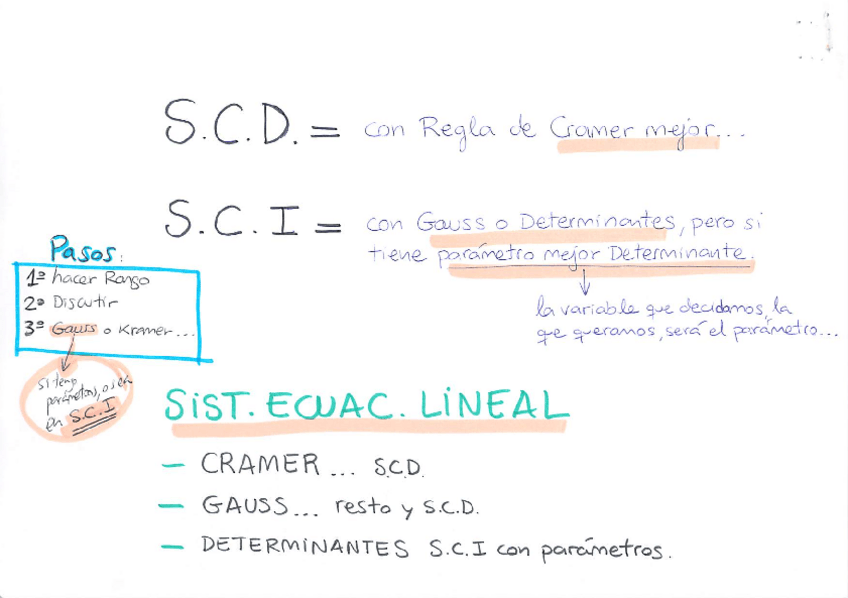 S.C.D. = con Regla de Cramer mejor...
S.C.I = con Gauss o Determinantes, pero si
tiene parámetro mejor Determinante.
la variable que decidamos, la
que queramos, será el parámetro...
Pasos:
1º hacer Rango
2º Discutir
3º Gauss o Kramer...
si tengo
parámetros, o sea
en S.C.I
SiST. ECUAC. LiNEAL
- CRAMER... S.C.D.
- GAUSS... resto y S.C.D.
- DETERMiNANTES S.C.I con parámetros.